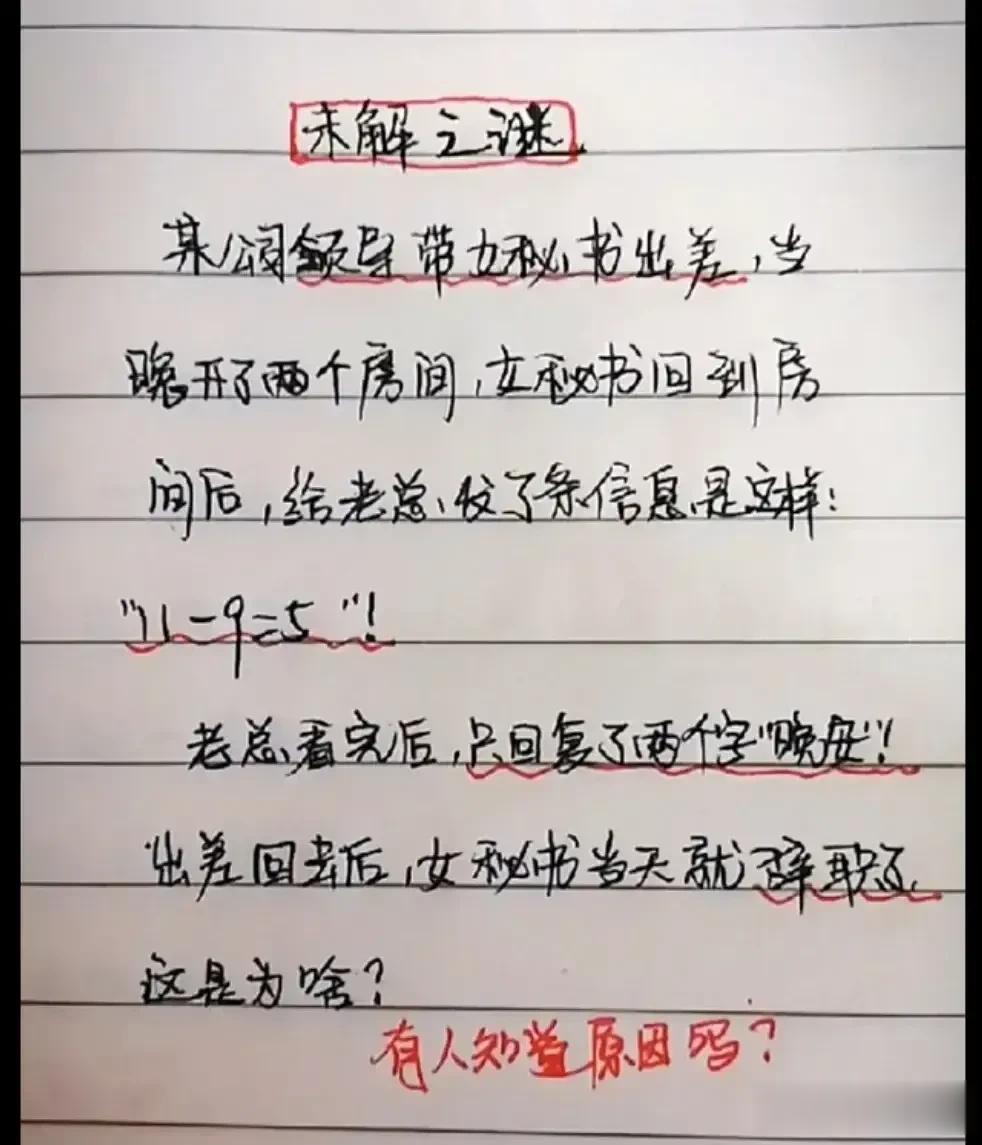 未解之谜
某公司领导带女秘书出差，当
晚开了两个房间，女秘书回到房
间后，给老总，发了条信息是这样：
"11-9=5"！
老总看完后，只回复了两个字"晚安"！
出差回去后，女秘书当天就辞职了，
这是为啥？
有人知道原因吗？